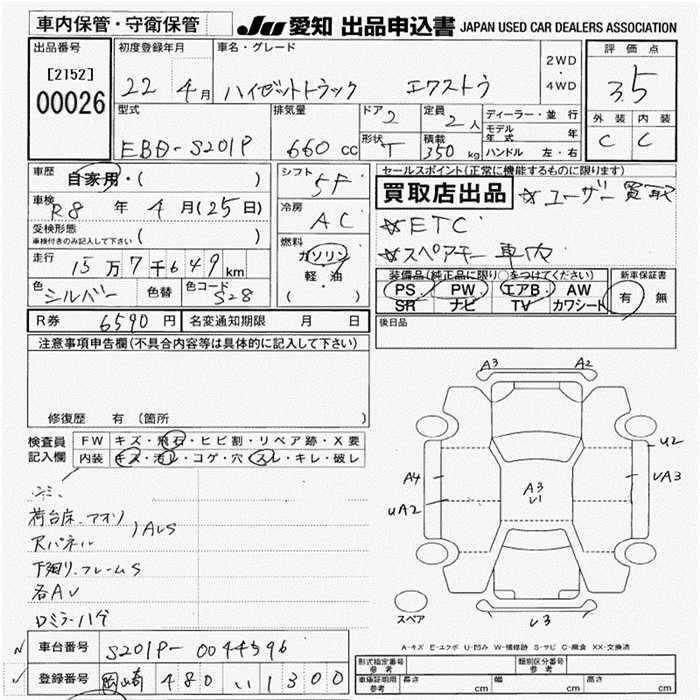 車内保管・守衛保管
JU 愛知 出品申込書 JAPAN USED CAR DEALERS ASSOCIATION
出品番号 初度登録年月 車名・グレード 評価点
[2152] 22 4月 ハイゼットトラック エクストラ 2WD ・ 4WD 3.5
00026
型式 排気量 ドア 2 定員 2人 ディーラー・並行 外装 内装
モデル年式 年 C C
EBD-S201P 660cc 形状 T 積載 350kg ハンドル 左・右
車歴 自家用・( ) シフト 5F セールスポイント(正常に機能するものに限ります)
買取店出品 ☆ユーザー買取
車検 R8年 4月(25日) 冷房 AC
☆ETC
受検形態 車検付きのみ記入して下さい ( )
☆スペアキー車内
燃料 ガソリン・軽・油 ( )
走行 15万7千649km
装備品(純正品に限り○をつけてください) 新車保証書
色 シルバー 色替 色コード S28
PS PW エアB AW 有 無
SR ナビ TV カワシート
R券 6590円 名変通知期限 月 日
後日品
注意事項申告欄(不具合内容等は具体的に記入して下さい)
修復歴 有 (箇所 )
A3 A2
検査員記入欄 FW キズ・飛石・ヒビ割・リペア跡・X要
内装 キズ・汚レ・コゲ・穴・スレ・キレ・破レ
U2
A4 A3 U1 UA3
UA2
荷台床.アオリ
)AUS
下廻り.フレームS
各AU
スペア
U3
A-キズ E-エクボ U-凹み W-補修跡 S-サビ C-腐食 XX-交換済
車台番号 S201P-0044596
登録番号 岡崎 480 い 1300
形式指定番号 参考 類別区分番号 参考
車庫証明用 参考 長さ cm 幅 cm 高さ cm